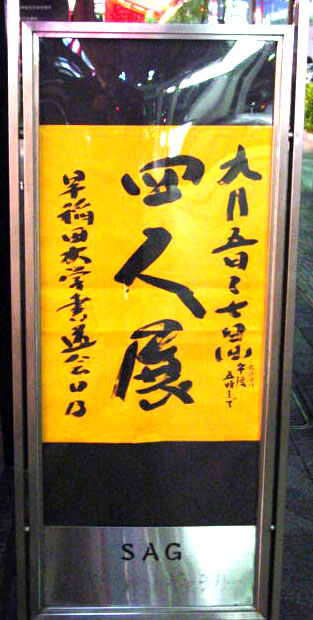 九月五日〜七日(日)
午後
五時まで
四人展
早稲田大学書道会OB
SAG